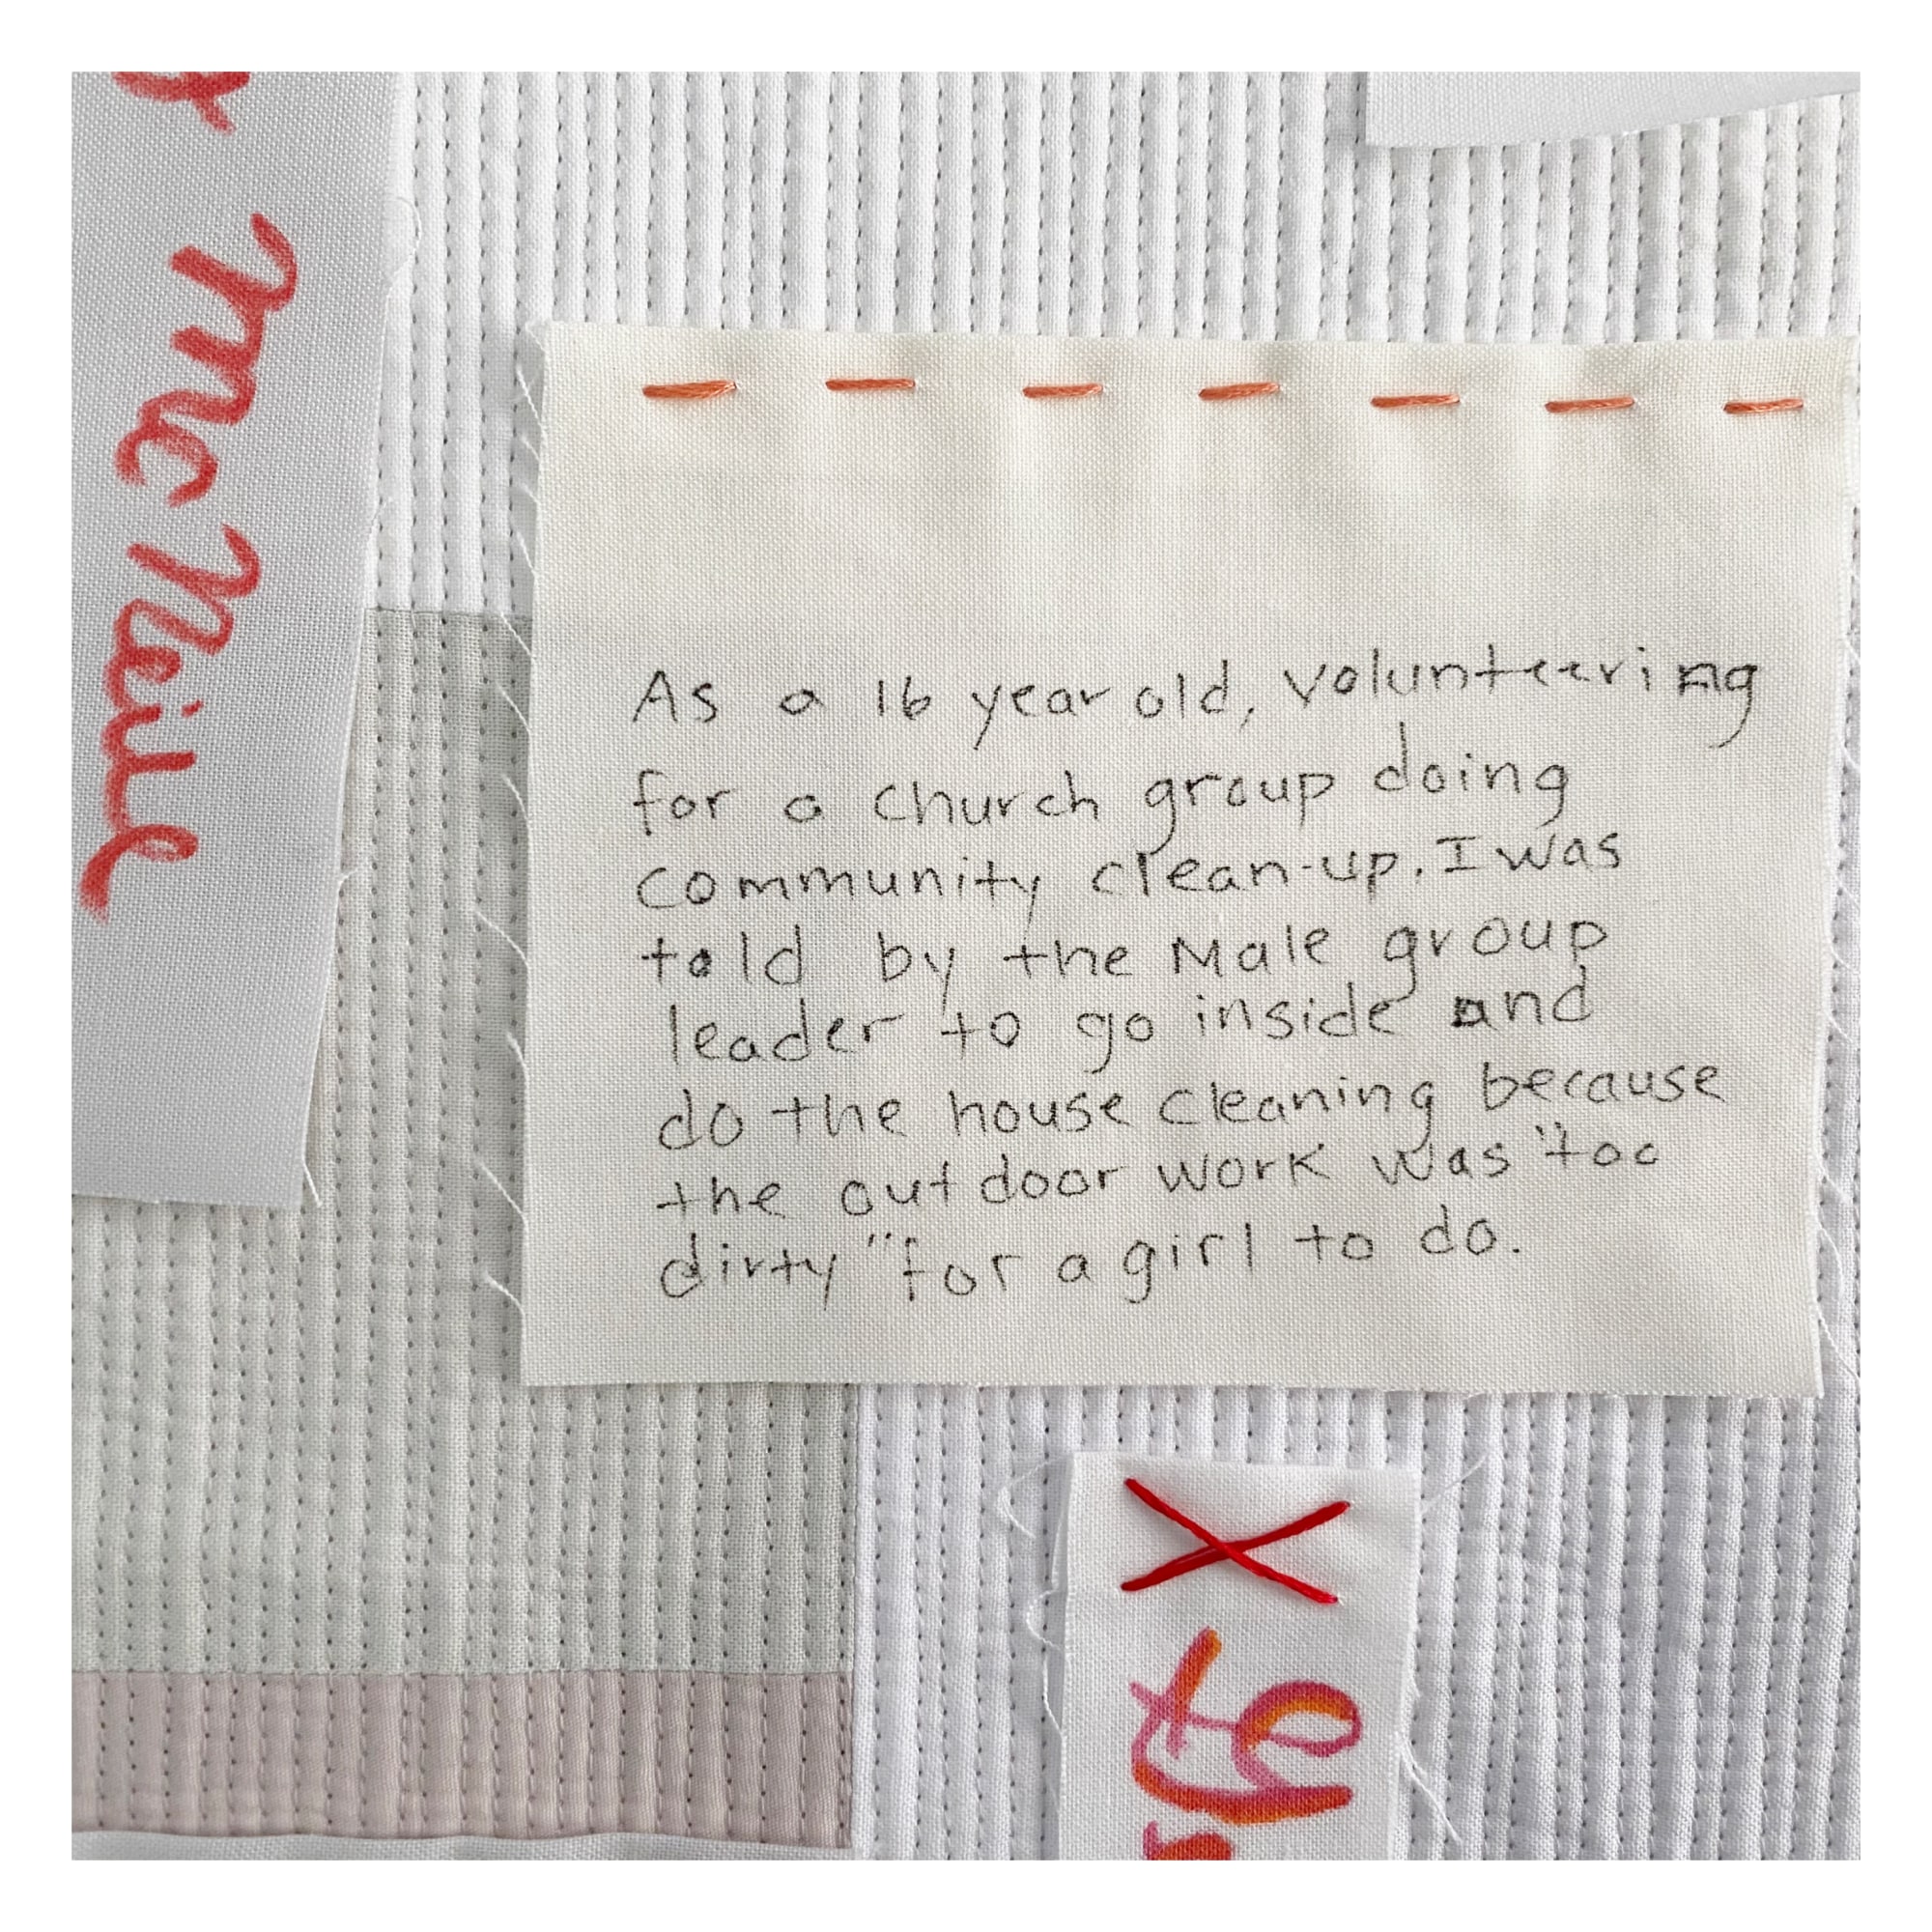 Mc Neill
As a 16 year old, volunteering
for a church group doing
community clean-up. I was
told by the Male group
leader to go inside and
do the house cleaning because
the outdoor work was "too
dirty" for a girl to do.